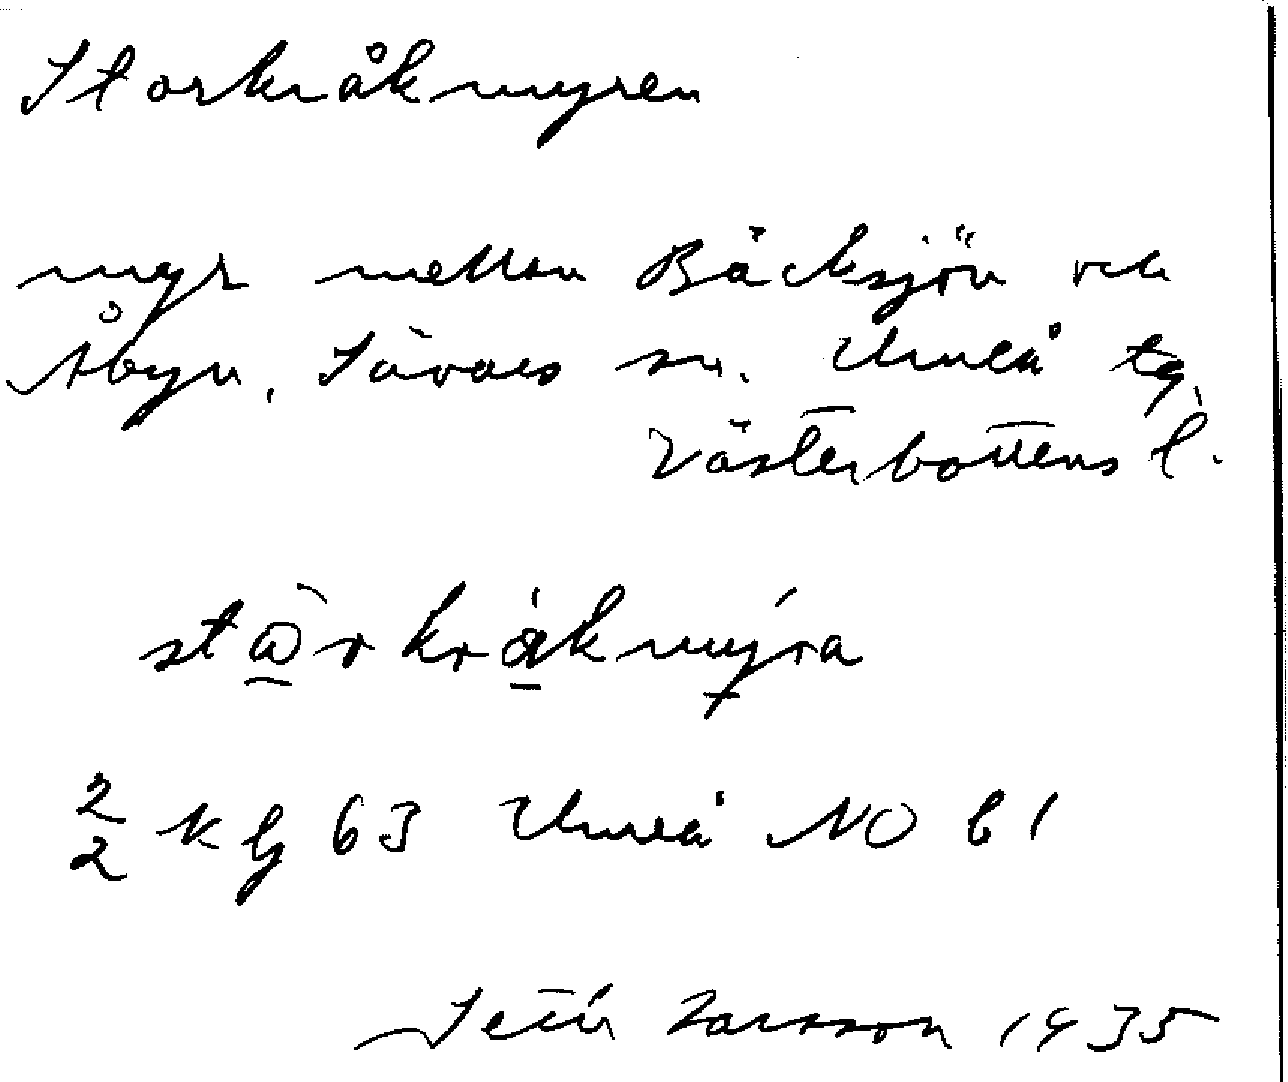 Storkråkmyren
myr mellan Bäcksjön och
Åbyn, Sävars sn. Umeå tg,
Västerbottens l.
kråkmyra
2/2 K bj 63 Umeå NO b 1
Larsson 1935